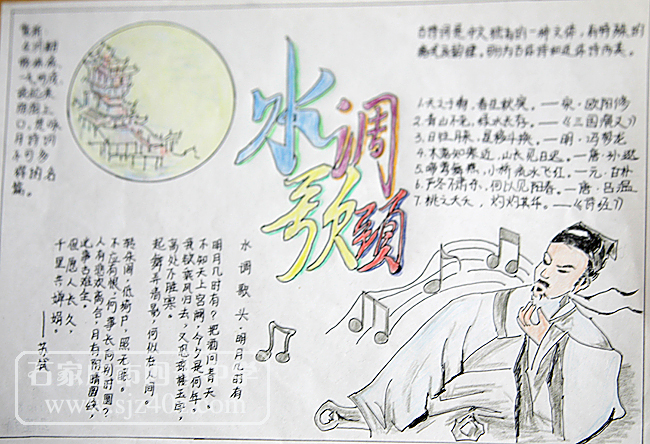 水调
歌頭
一气呵成
读起来
琅琅上
口,是咏
月诗词
中可多
得的名
篇。
古诗词是中文独有的一种文体,有特殊的
格式及韵律。别为古体诗和近体诗两类。
1.天之于物,春生秋实。——宋·欧阳修
2.青山不老,绿水长存。——《三国演义》
3.日往月来,星移斗换。——明·冯梦龙
4.木落知寒近,山长见日迟。——唐·孙逖
5.啼莺舞燕,小桥流水飞红。——元·白朴
6.严冬不肃杀,何以见阳春。——唐·吕温
7.桃之夭夭,灼灼其华。——《诗经》
水调歌头·明月几时有
明月几时有?把酒问青天
不知天上宫阙,今夕是何年。
我欲乘风归去,又恐琼楼玉宇,
高处不胜寒。
起舞弄清影,何似在人间。
转朱阁,低绮户,照无眠。
不应有恨,何事长向别时圆?
人有悲欢离合,月有阴晴圆缺,
此事古难全。
但愿人长久,
千里共婵娟。
——苏轼